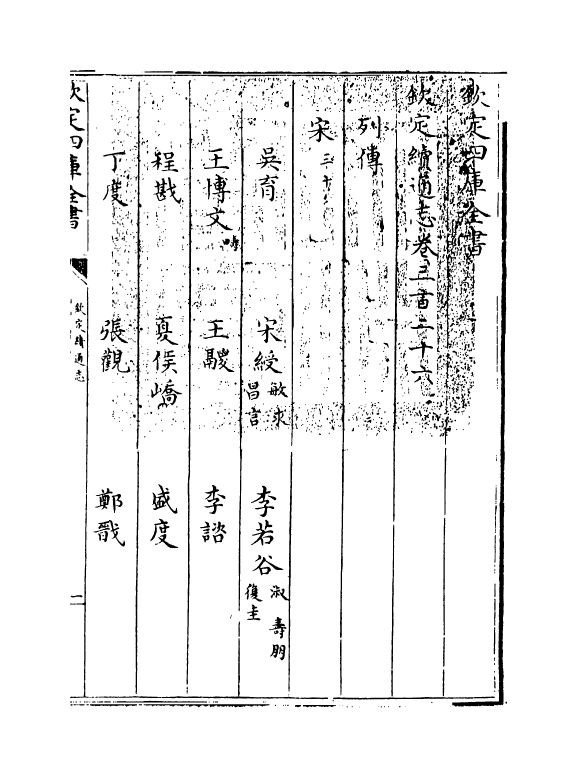 欽定四庫全書
欽定續通志卷三百二十六
列傳
宋三十
吳育 宋綬敏求昌言 李若谷淑壽朋復圭
王博文疇 王鬷 李諮
程戡 夏侯嶠 盛度
丁度 張觀 鄭戩
欽定四庫全書
欽定續通志
一